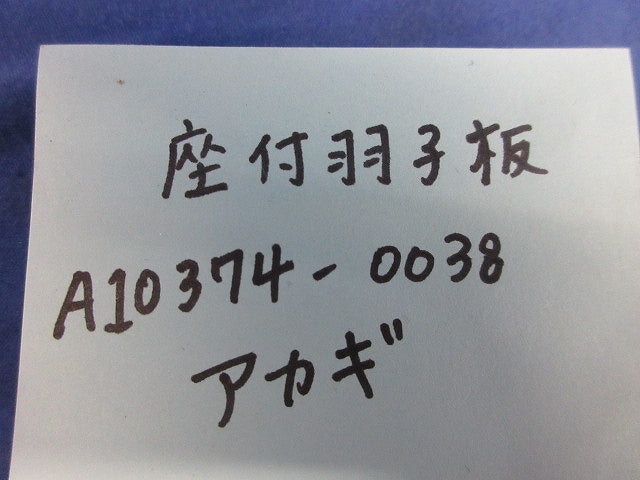 座付羽子板
A10374-0038
アカギ